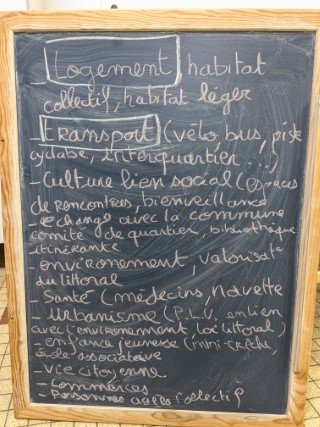 Logement habitat
collectif, habitat léger
- transport (vélo, bus, piste
cyclabe, interquartier ...)
- Culture lien social (Espaces
de rencontres, bienveillance
échange avec la commune
comité de quartier, bibliothèque
itinérante
- environement, valorisat°
du littoral
- Santé (médecins, navette
- urbanisme (P.L.U. en lien
avec l'environnement, loi littoral)
- enfance jeunesse (mini-crèche,
associative
- vie citoyenne.
- Commerces
- Personnes agées